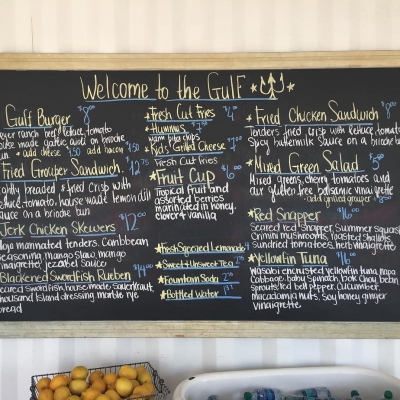 Welcome to the Gulf
Gulf Burger $8.00
ranch beef, lettuce, tomato
house made garlic aioli on brioche
bun + add cheese 1.50 add bacon 1.50
Fried Grouper Sandwich $12.75
lightly breaded & fried crisp with
lettuce, tomato, house made lemon dill
sauce on a brioche bun
Jerk Chicken Skewers $12.00
marinated tenders. Caribbean
seasoning, mango slaw, mango
vinaigrette, jezebel sauce
Blackened Swordfish Rueben $14.00
seared swordfish, house made sauerkraut,
thousand island dressing, marble rye
bread
Fresh Cut Fries $4.00
Hummus
warm pita chips
Kids Grilled Cheese
Fresh Cut Fries
Fruit Cup $6.00
Tropical fruit and
assorted berries
marinated in honey,
clover & vanilla
Fresh Squeezed Lemonade 4
Sweet & Unsweet Tea
Fountain Soda
Bottled Water
Fried Chicken Sandwich $8.00
Tenders fried crisp with lettuce, tomato
Spicy buttermilk Sauce on a brioche bun
Mixed Green Salad $5.00
Mixed greens, cherry tomatoes and
our gluten free, balsamic vinaigrette
- add grilled grouper
Red Snapper $16.00
Seared red Snapper, summer squash
Crimini mushrooms, roasted shallots
sundried tomatoes, herb vinaigrette
Yellowfin Tuna $16.00
wasabi encrusted yellowfin tuna, napa
cabbage, baby spinach, bok choy, bean
sprouts, red bell pepper, cucumber
macadamia nuts, soy honey ginger
vinaigrette